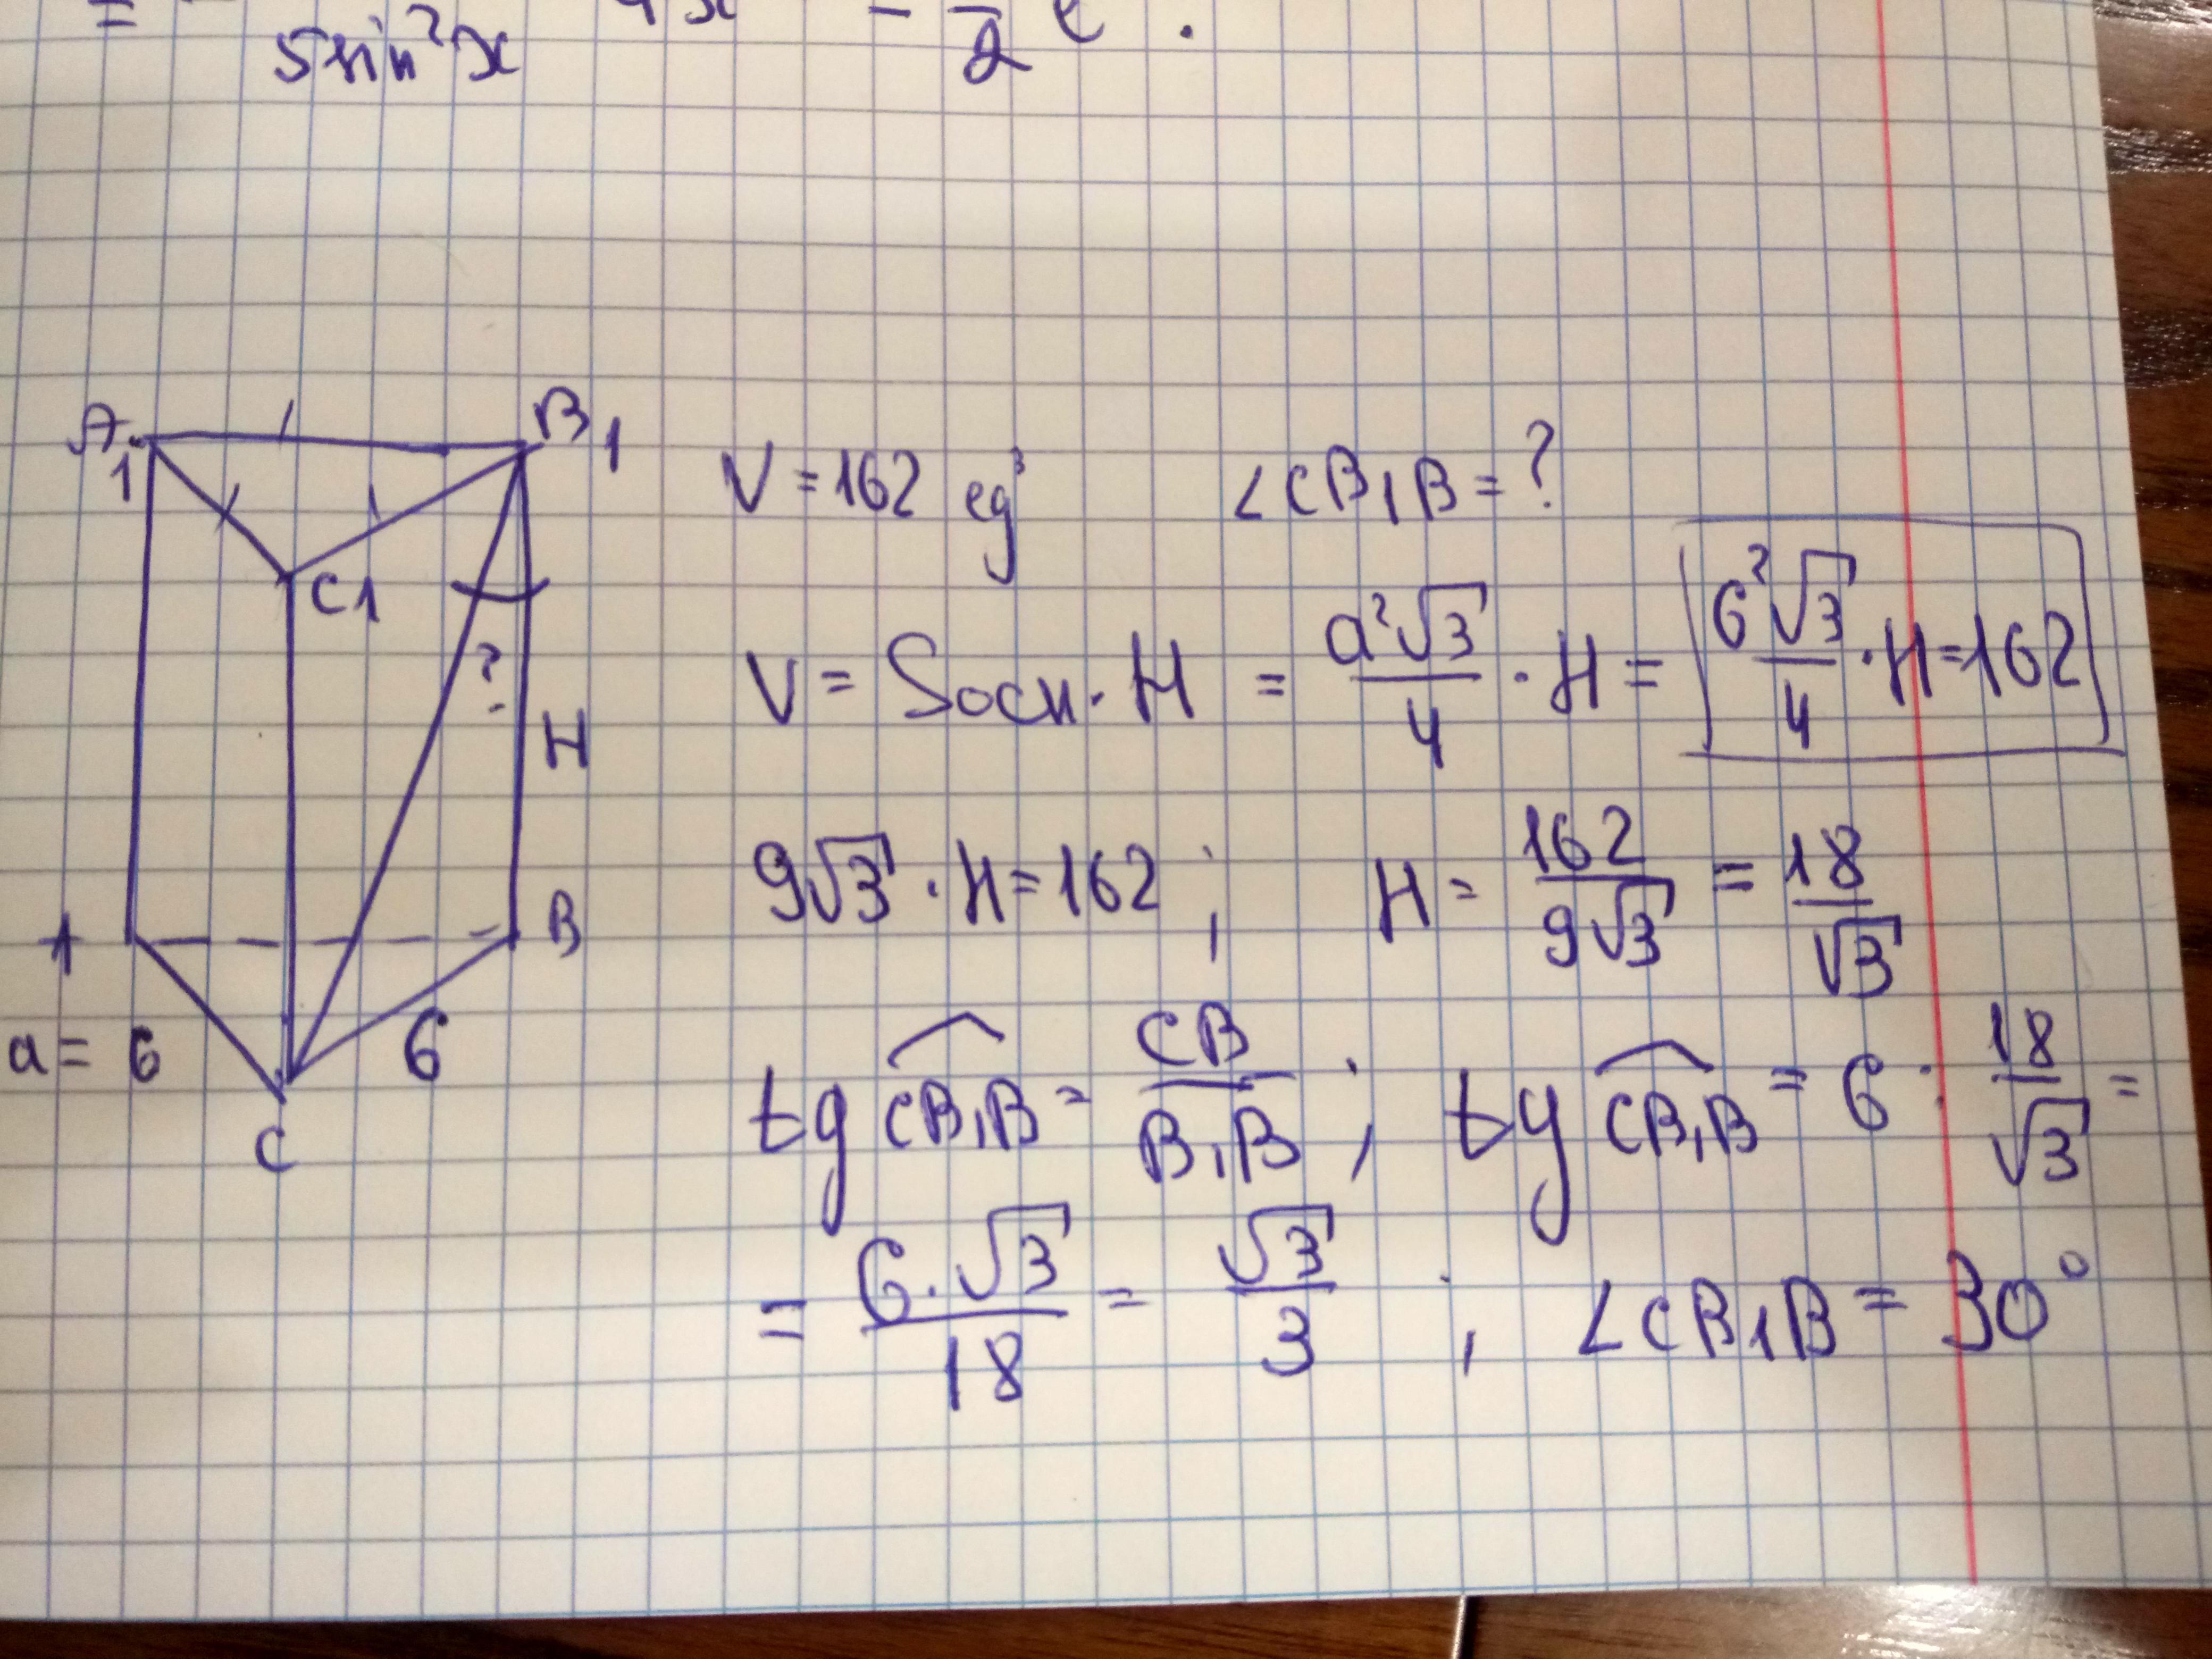 =
sin²x
- —/2
A1 B1
C1
?
H
A B
a = 6 6
C
V = 162 eg³ ∠CB1B = ?
V = Sосн · H = a²√3/4 · H = 6²√3/4 · H = 162
9√3 · H = 162 ; H = 162/9√3 = 18/√3
tg CB1B = CB/B1B ; tg CB1B = 6 : 18/√3 =
= 6·√3/18 = √3/3 ; ∠CB1B = 30°